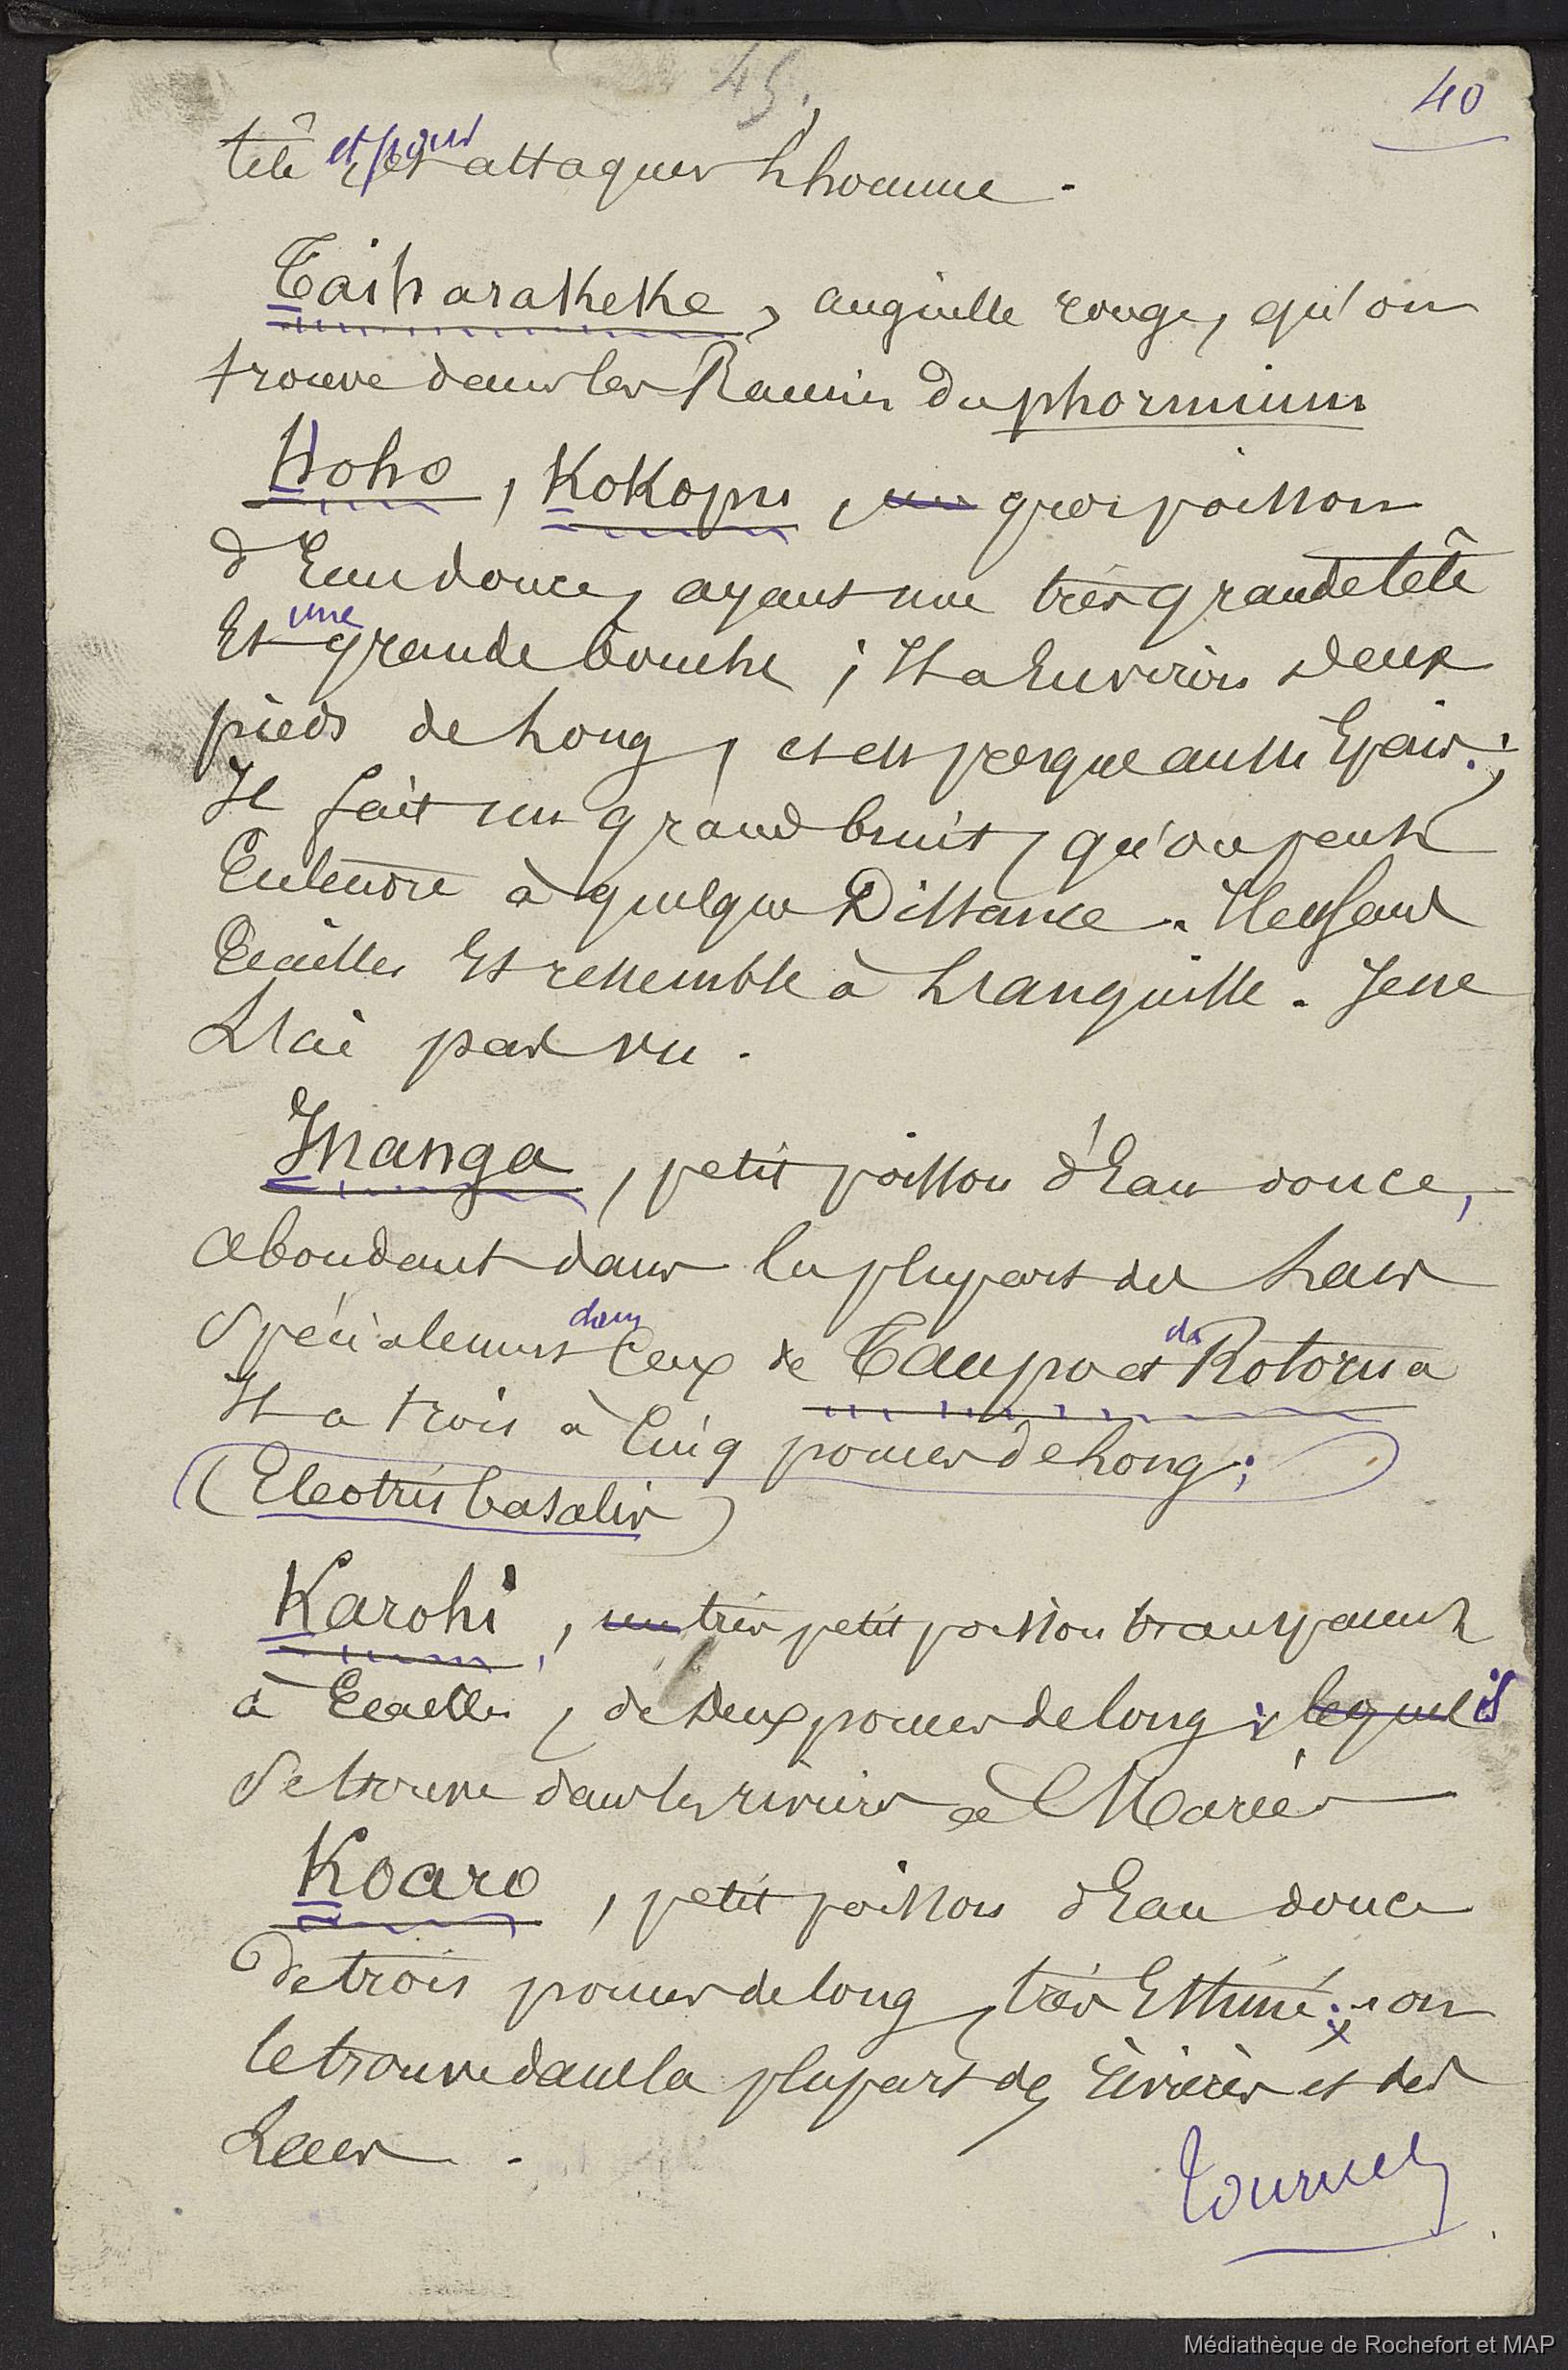 45.
40
tête et pour attaquer L'homme.
Taiharakeke, anguille rouge, qu'on
trouve dans les Racines du phormium
Hoho, Kokopu, un gros poisson
d'Eau douce, ayant une très grande tête
Et une grande bouche ; Il a Environ deux
pieds de Long, et est presque aussi Epais ;
Il fait un grand bruit, qu'on peut
Entendre à quelque Distance. Il est sans
Ecailles Et ressemble à L'anguille. Je ne
L'ai pas vu.
Inanga, petit poisson d'Eau douce,
abondant dans la plupart des Lacs
Spécialement dans Ceux de Taupo et de Rotorua
Il a trois à Cinq pouces de Long ;
(Eleotris basalis)
Karohi, un très petit poisson transparent
à Ecailles, de deux pouces de long ; lequel il
Se trouve dans les rivières à Marées
Koaro, petit poisson d'Eau douce
de trois pouces de long, très Estimé ; on
le trouve dans la plupart des rivières et des
Lacs.
Tournez
Médiathèque de Rochefort et MAP